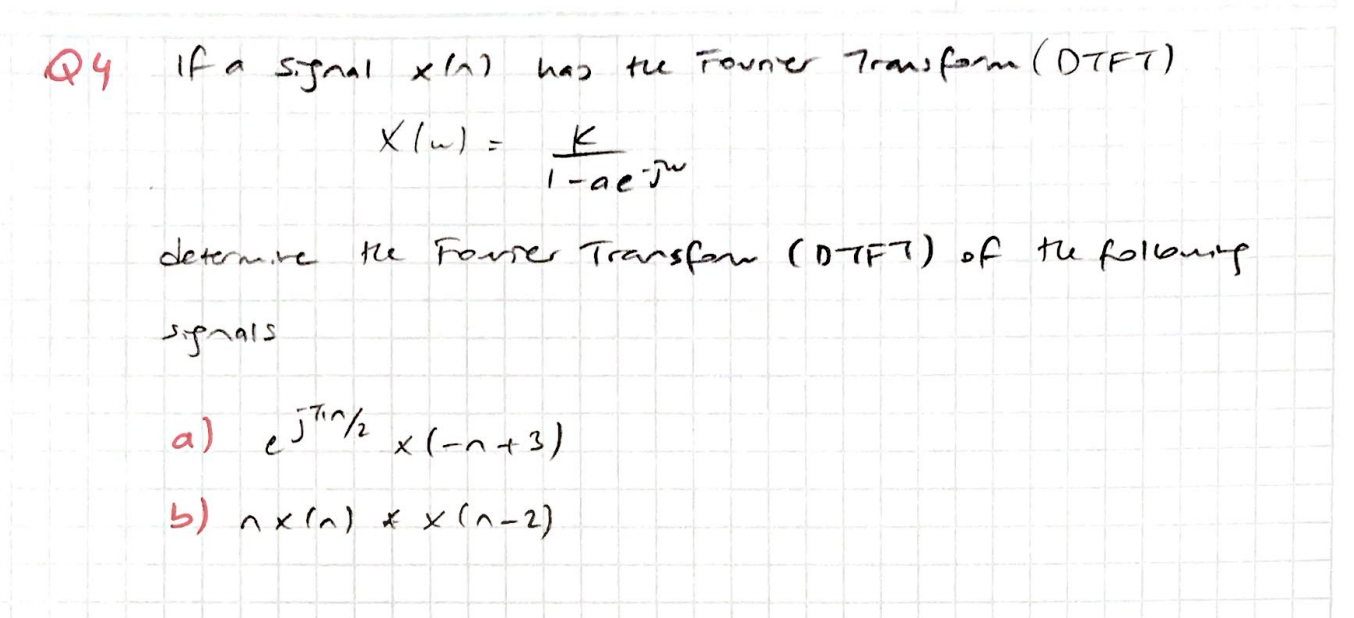 Q4 If a signal x(n) has the Fourier Transform (DTFT)
X(w) = K / (1 - ae^-jw)
determine the Fourier Transform (DTFT) of the following
signals
a) e^jπn/2 x(-n+3)
b) n x(n) * x(n-2)